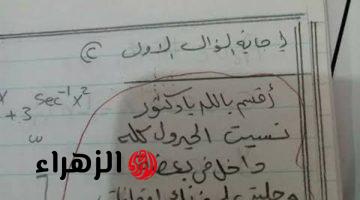 إجابة السؤال الاول (c
+3 sec⁻¹x²
أقسم بالله يا دكتور
نسيت الجدول كله
داخل في بعضه
الزهراء